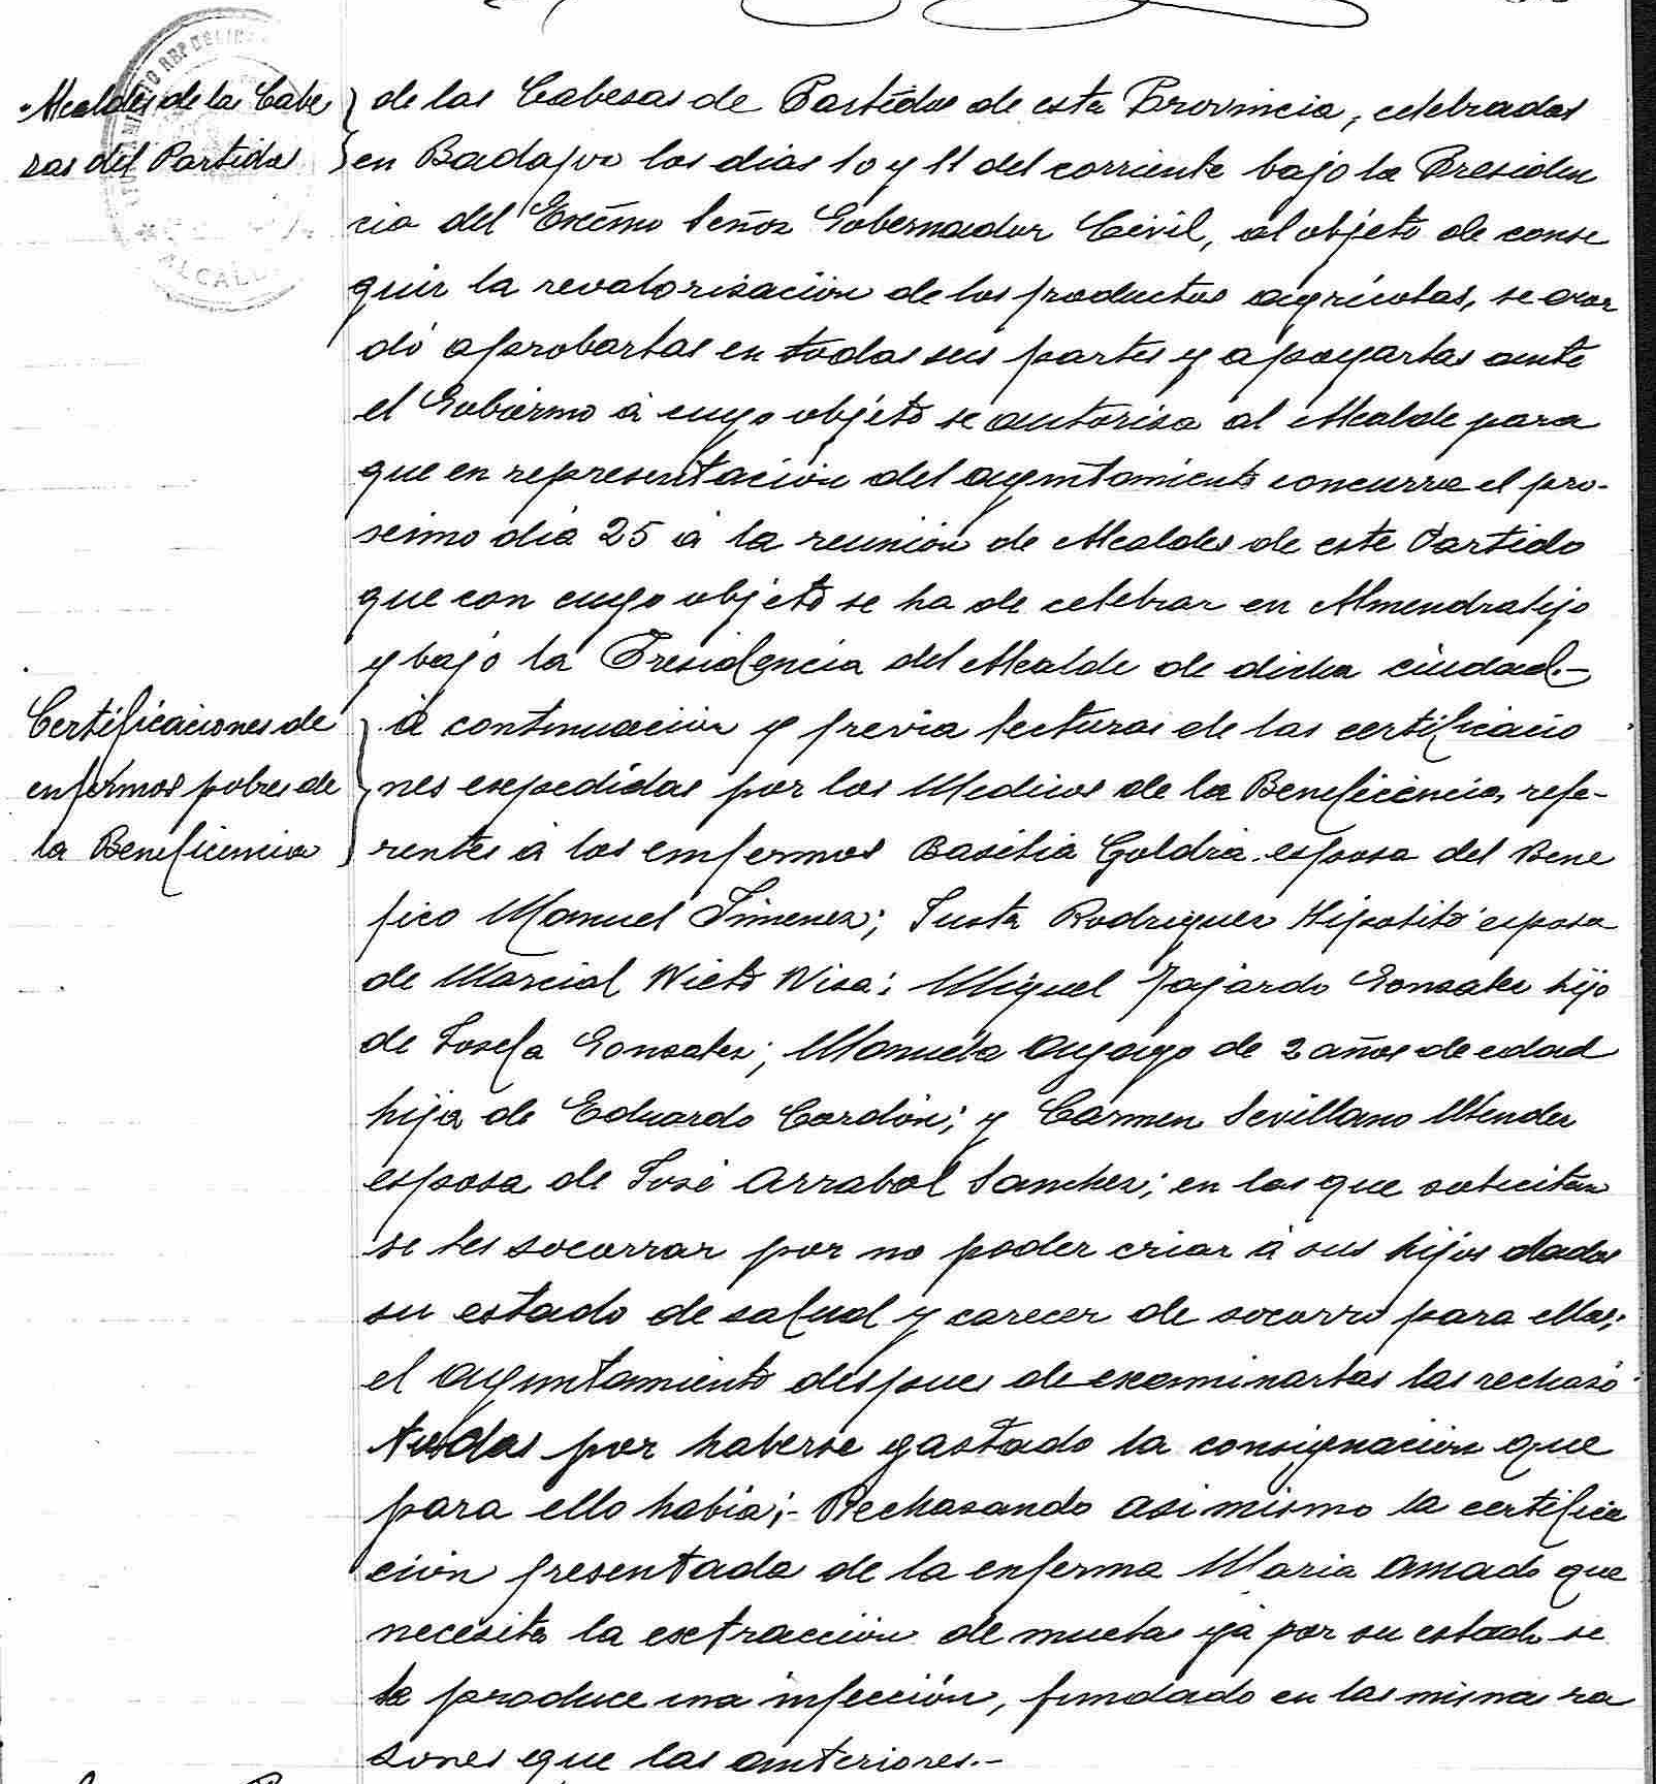 Alcaldes de la Cabe
zas del Partidas
de las Cabesas de Partidos de esta Provincia, celebradas
en Badajoz los dias 10 y 11 del corriente bajo la Presiden
cia del Excmo Señor Gobernador Civil, al objeto de conse
guir la revalorisación de los productos agrícolas, se acor
dó aprobarlas en todas sus partes y apoyarlas ante
el Gobierno á cuyo objeto se autorisa al Alcalde para
que en representación del ayuntamiento concurra el pro-
seimo dia 25 á la reunión de Alcaldes de este Partido
que con cuyo objeto se ha de celebrar en Almendralejo
y bajo la Presidencia del Alcalde de dicha ciudad.-
Certificaciones de
enfermos pobres de
la Beneficencia
á continuación y previa lecturas de las certificacio
nes expedidas por los Medicos de la Beneficencia, refe-
rentes á los enfermos Basilia Goldria esposa del Bene
fico Manuel Jimenez; Justa Rodriguez Hipolito esposa
de Marcial Nieto Nisa; Miguel Fajardo Gonzalez hijo
de Josefa Gonsalez; Manuela Ayago de 2 años de edad
hija de Eduardo Cordón; y Carmen Sevillano Mendez
esposa de José Arrabal Sanchez; en las que solicitan
se les socorrar por no poder criar á sus hijos dados
su estado de salud y carecer de socorro para ellos;
el ayuntamiento despues de examinarlas las rechasó
todas por haberse gastado la consignación que
para ello había;- Rechasando asi mismo la certifica
ción presentada de la enferma Maria Amado que
necesita la extracción de muelas yá por su estado se
le produce una infección, fundado en las misma ra
sones que las anteriores.-
ALCALD